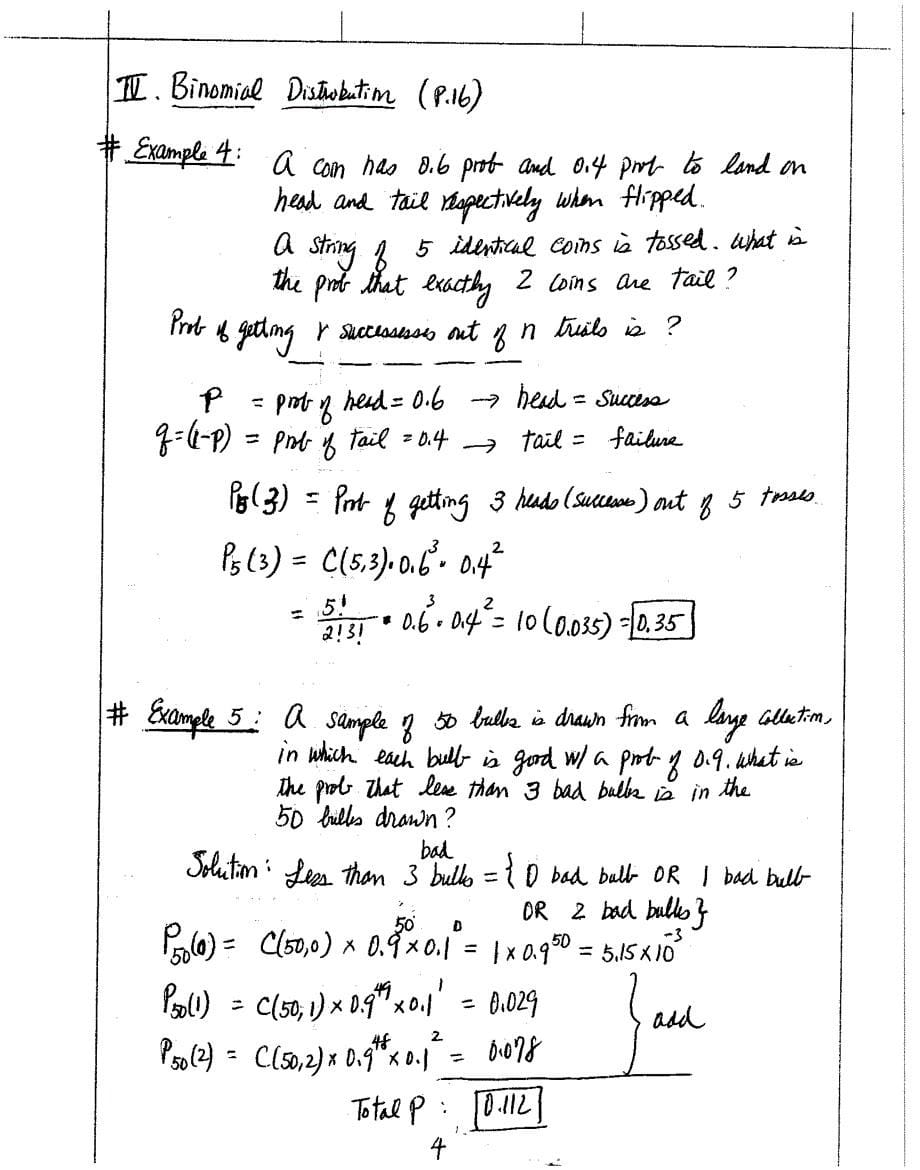 IV. Binomial Distribution (P.16)
# Example 4:
A coin has 0.6 prob and 0.4 prob to land on
head and tail respectively when flipped.
A string of 5 identical coins is tossed. What is
the prob that exactly 2 coins are tail?
Prob of getting r successesses out of n trials is ?
p = prob of head = 0.6 → head = Success
q=(1-p) = prob of tail = 0.4 → tail = failure
P5(3) = Prob of getting 3 heads (success) out of 5 tosses.
P5(3) = C(5,3)·0.6³· 0.4²
= 5!/2!3! · 0.6³ · 0.4² = 10(0.035) = 0.35
# Example 5: A sample of 50 bulbs is drawn from a large collection,
in which each bulb is good w/ a prob of 0.9. What is
the prob that less than 3 bad bulbs is in the
50 bulbs drawn?
Solution: Less than 3 bad bulbs = { 0 bad bulb OR 1 bad bulb
OR 2 bad bulbs }
P50(0) = C(50,0) × 0.9⁵⁰ × 0.1⁰ = 1 × 0.9⁵⁰ = 5.15 × 10⁻³
P50(1) = C(50,1) × 0.9⁴⁹ × 0.1¹ = 0.029
P50(2) = C(50,2) × 0.9⁴⁸ × 0.1² = 0.078
} add
Total P : 0.112
4